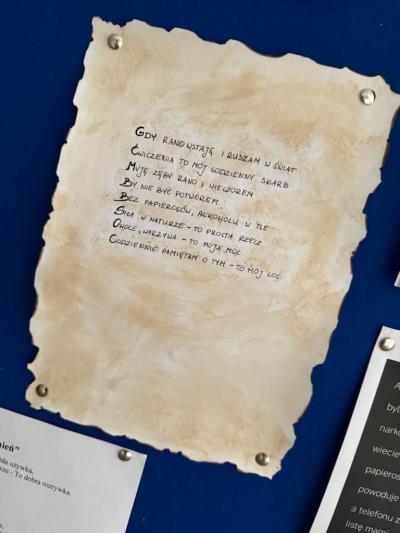 GDY RANO WSTAJĘ I RUSZAM W ŚWIAT
ĆWICZENIA TO MÓJ CODZIENNY SKARB
MYJĘ ZĘBY RANO I WIECZOREM
BY NIE BYĆ POTWOREM
BEZ PAPIEROSÓW, ALKOHOLU W TLE
SIŁA W NATURZE - TO PROSTA RZECZ
OWOCE, WARZYWA - TO MOJA MOC
CODZIENNIE PAMIĘTAM O TYM - TO MÓJ LOS
używka.
- To dobra rozrywka.
A
była
narko
wiecie
papieros
powoduje
a telefonu z
listę